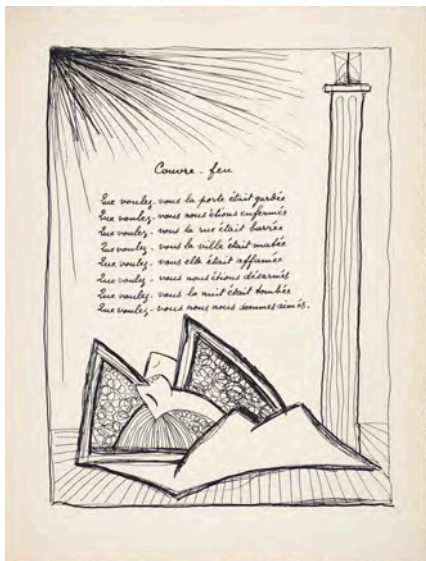 Couvre-feu
Que voulez-vous la porte était gardée
Que voulez-vous nous étions enfermés
Que voulez-vous la rue était barrée
Que voulez-vous la ville était matée
Que voulez-vous elle était affamée
Que voulez-vous nous étions désarmés
Que voulez-vous la nuit était tombée
Que voulez-vous nous nous sommes aimés.